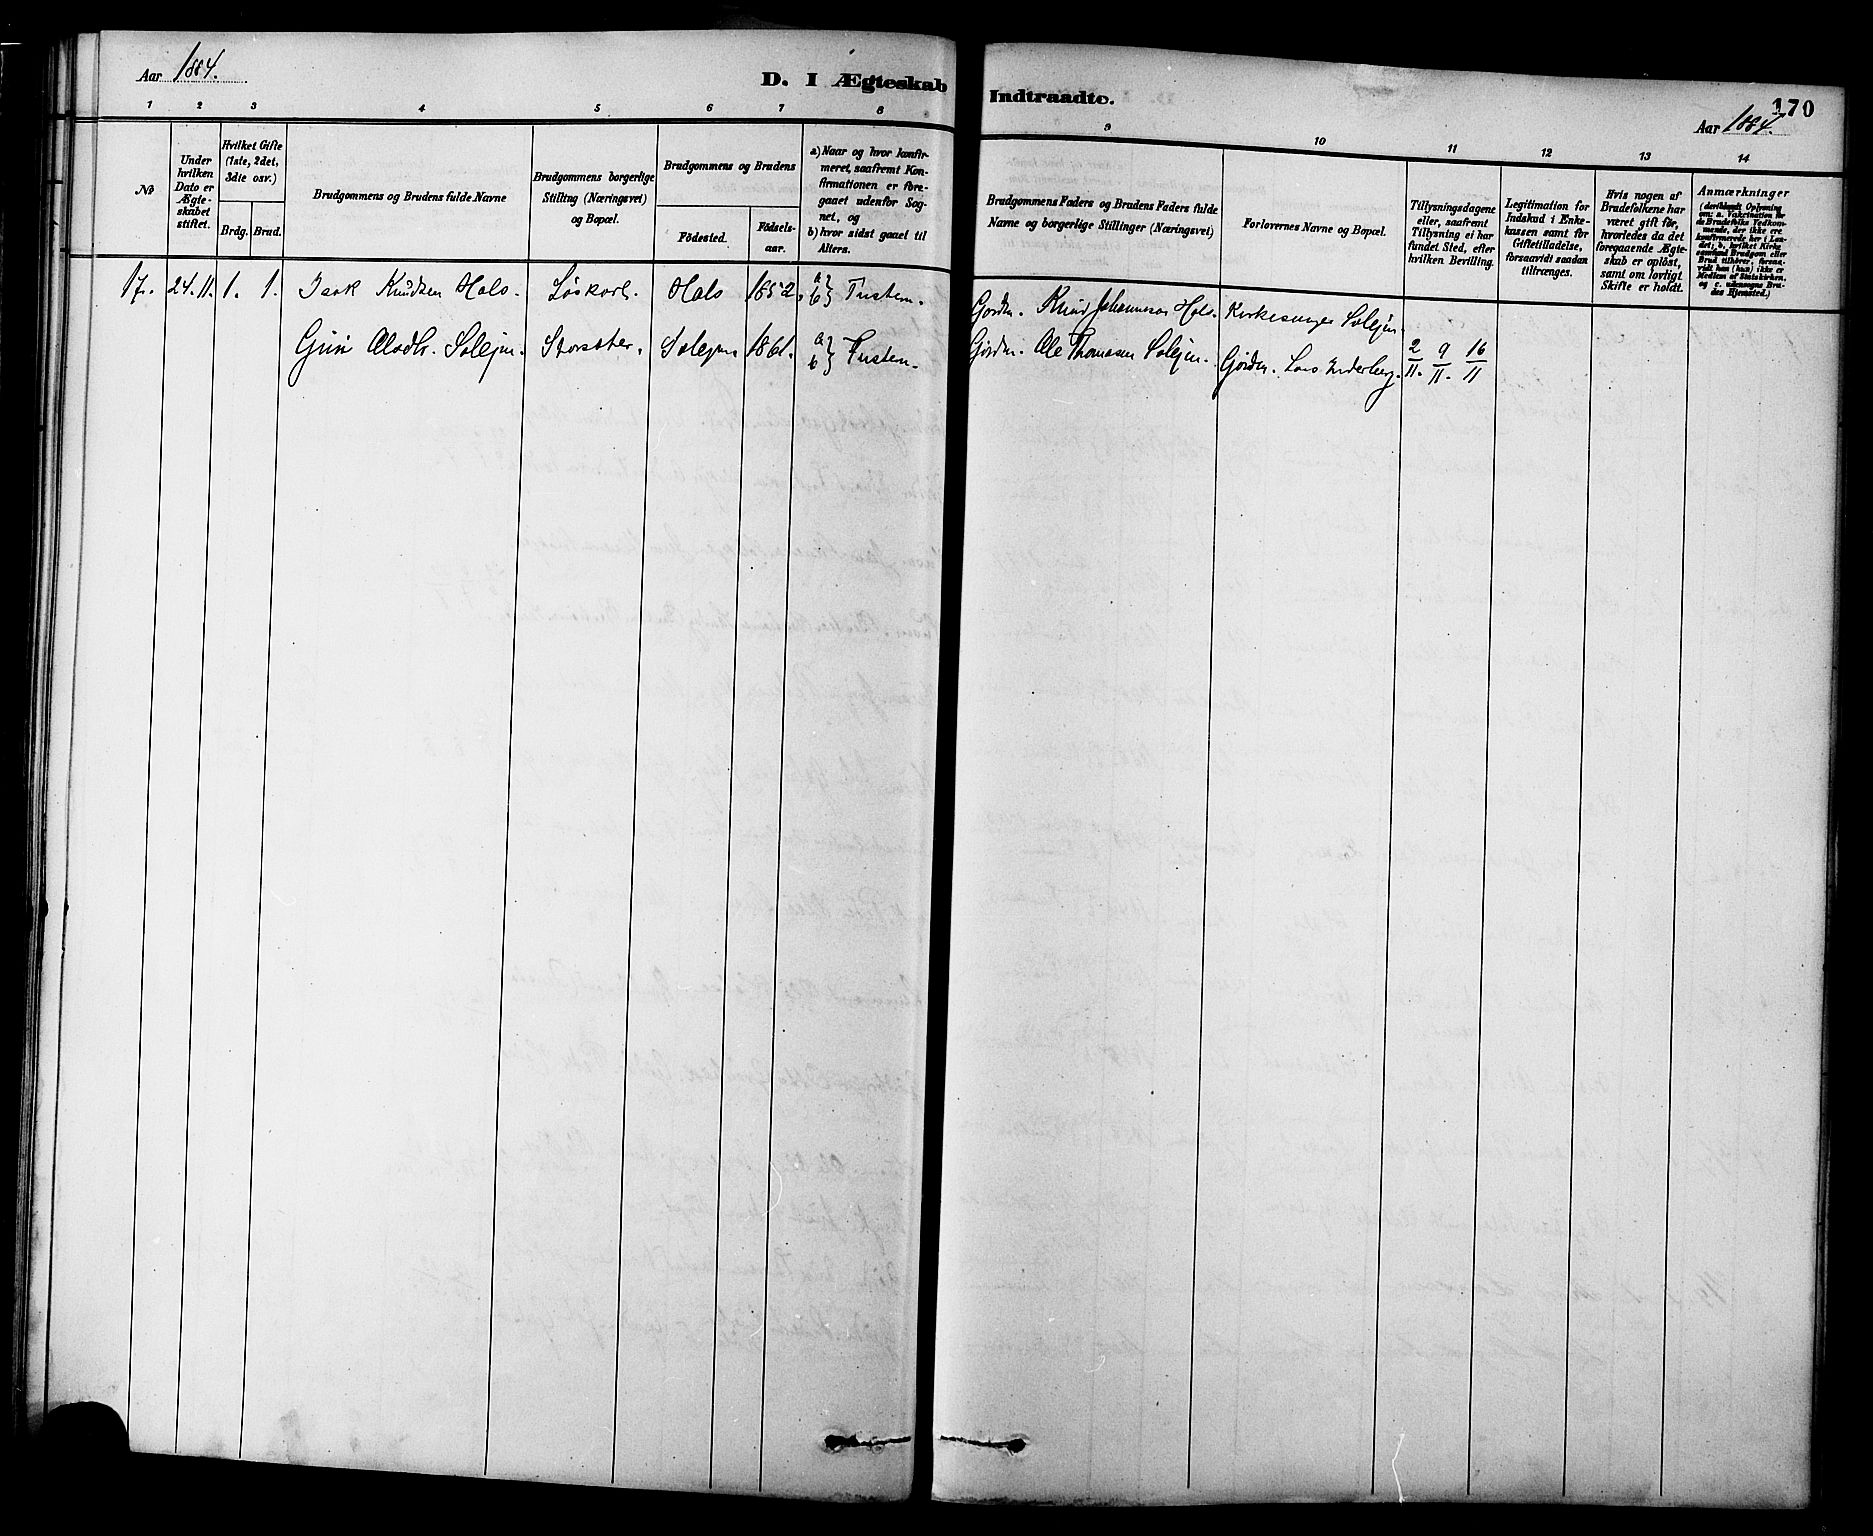 Aar 1884.
D. I Ægteskab
Indtraadte.
170
Aar 1884.
1 2 3 4 5 6 7 8
9 10 11 12 13 14
No
Under hvilken Dato er Ægteskabet stiftet.
Hvilket Gifte (1ste, 2det, 3die osv.)
Brdg. Brud.
Brudgommens og Brudens fulde Navne
Brudgommens borgerlige Stilling (Næringsvei) og Bopæl.
Brudgommens og Brudens
Födested. Födselsaar.
a) Naar og hvor konfirmeret, saafremt Konfirmationen er foregaaet udenfor Sognet, og
b) hvor sidst gaaet til Alters.
Brudgommens Faders og Brudens Faders fulde Navne og borgerlige Stillinger (Næringsvei)
Forlovernes Navne og Bopæl.
Tillysningsdagene eller, saafremt Tillysning ei har fundet Sted, efter hvilken Bevilling.
Legitimation for Indskud i Enkekassen samt for Giftetilladelse, forsaavidt saadan tiltrænges.
Hvis nogen af Brudefolkene har været gift för, hvorledes da det foregaaende Ægteskab er oplöst, samt om lovligt Skifte er holdt.
Anmærkninger
(deriblandt Oplysning om: a. Vaccination for de Brudefolks Vedkommende, der ikke ere konfirmerede her i Landet; b. hvilket Kirkesamfund Brudgom eller Brud tilhörer, forsaavidt han (hun) ikke er Medlem af Statskirken, og c. udensogns Brudes Hjemsted.)
17. 24.11. 1. 1. Isak Knudsen Hals. Löskarl. Hals 1852. a} b} Tusten.
Gordm. Knud Johannesen Hals. Kirkesanger Solejm.
Guri Olsdtr. Solejm. Storsæter. Solejm 1861. a} b} Tusten.
Gordm. Ole Thomasen Solejm. Gordm. Lars Enderberg. 2/11. 9/11. 16/11